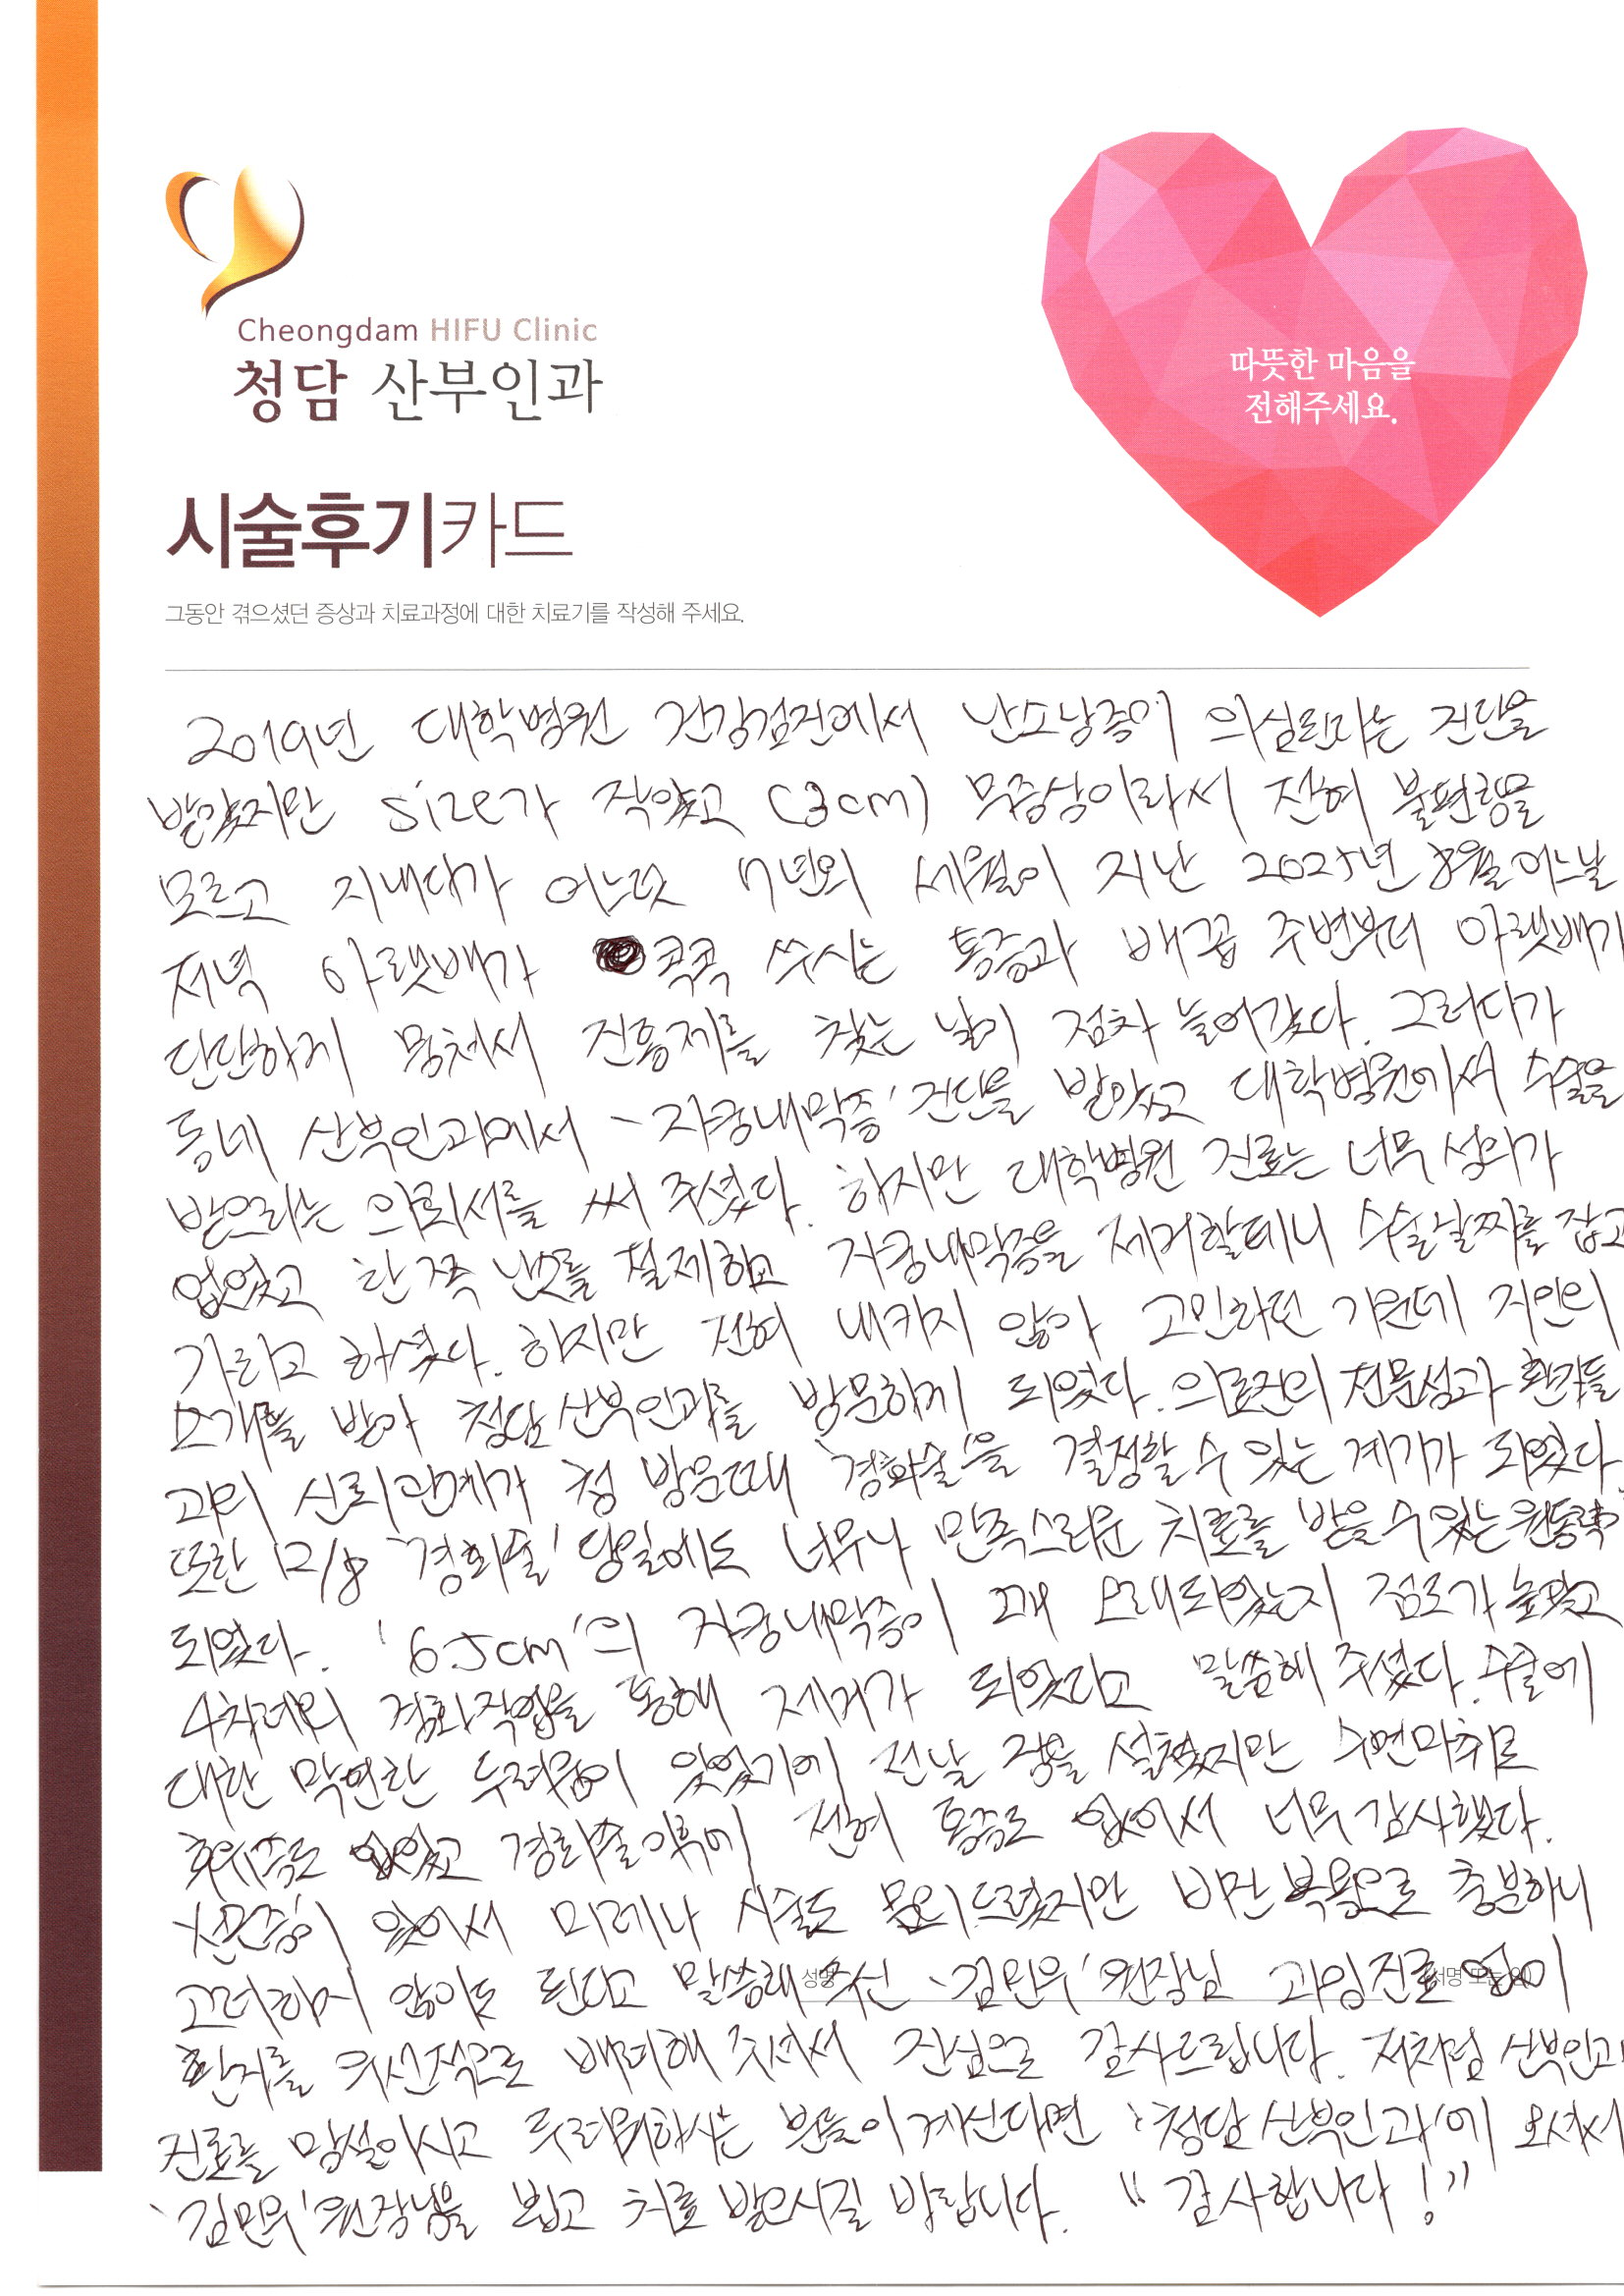 Cheongdam HIFU Clinic
청담 산부인과
따뜻한 마음을
전해주세요.
시술후기카드
그동안 겪으셨던 증상과 치료과정에 대한 치료기를 작성해 주세요.
2019년 대학병원 건강검진에서 난소낭종이 의심된다는 진단을
받았지만 size가 작았고 (3cm) 무증상이라서 전혀 불편함을
모르고 지내다가 어느덧 7년의 세월이 지난 2025년 8월 어느날
저녁 아랫배가 콕콕 쑤시는 통증과 배꼽 주변부터 아랫배가
단단하게 뭉쳐서 진통제를 찾는 날이 점차 늘어갔다. 그러다가
동네 산부인과에서 '자궁내막증' 진단을 받았고 대학병원에서 수술을
받으라는 의뢰서를 써 주셨다. 하지만 대학병원 진료는 너무 성의가
없었고 한쪽 난소를 절제하고 자궁내막증을 제거할테니 수술날짜를 잡고
가라고 하셨다. 하지만 전혀 내키지 않아 고민하던 가운데 지인의
소개를 받아 청담산부인과를 방문하게 되었다. 의료진의 전문성과 환자들
과의 신뢰관계가 첫 방문때 '경화술'을 결정할 수 있는 계기가 되었다.
또한 12/8 '경화술' 당일에도 너무나 만족스러운 치료를 받을 수 있는 원동력
되었다. '6.5cm'의 자궁내막증이 꽤 오래되었는지 점도가 높았고
4차례의 경화작업을 통해 제거가 되었다고 말씀해 주셨다. 수술에
대한 막연한 두려움이 있었기에 전날 잠을 설쳤지만 수면마취로
후유증도 없었고 경화술 이후에 전혀 통증도 없어서 너무 감사했다.
선근증이 있어서 미레나 시술도 문의드렸지만 비잔 복용으로 충분하니
고려하지 않아도 된다고 말씀해 주신 '김민우' 원장님 과잉진료 없이
성명
환자를 우선적으로 배려해 주셔서 진심으로 감사드립니다. 저처럼 산부인과
진료를 망설이시고 두려워하시는 분들이 계신다면 '청담 산부인과'에 오셔서
'김민우' 원장님을 뵙고 치료 받으시길 바랍니다. "감사합니다!"